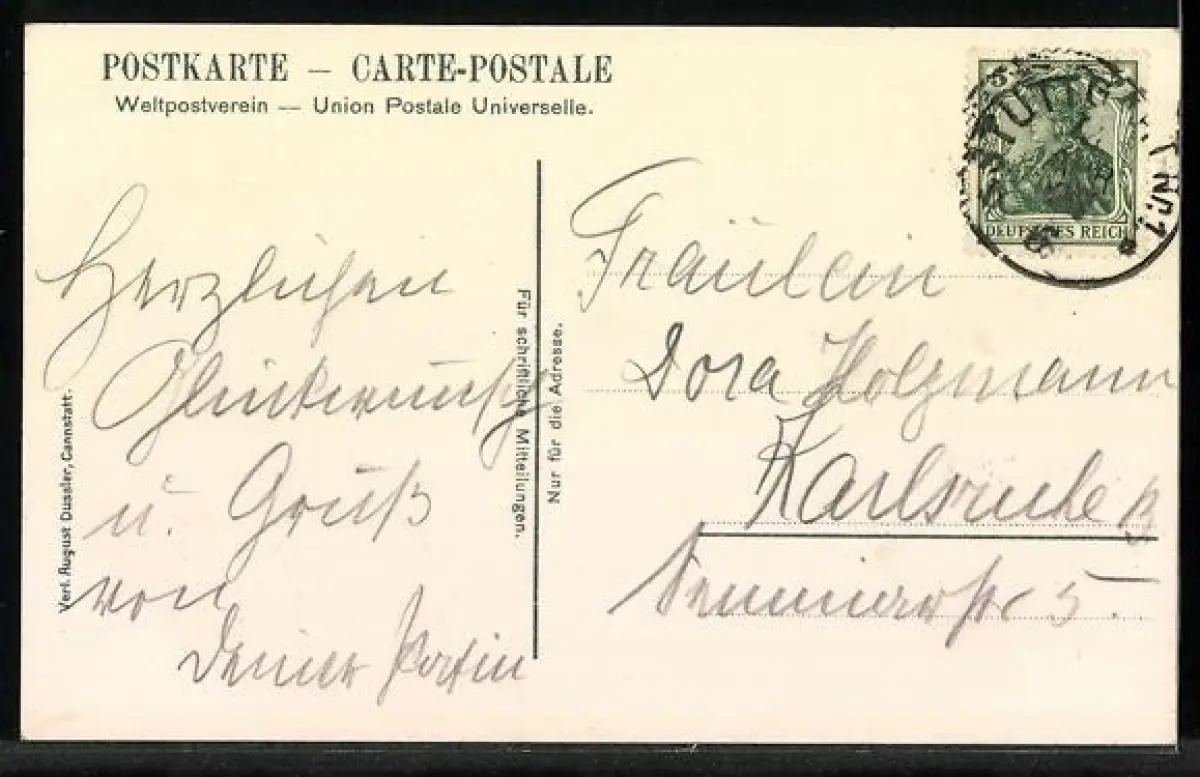 POSTKARTE — CARTE-POSTALE
Weltpostverein — Union Postale Universelle.
STUTTGART No. 1
DEUTSCHES REICH
Herzlichen
Glückwunsch
u. Gruß
von
Deiner
Verl. August Dussler, Cannstatt.
Für schriftliche Mitteilungen.
Nur für die Adresse.
Fräulein
Dora Holzmann
Karlsruhe
5.